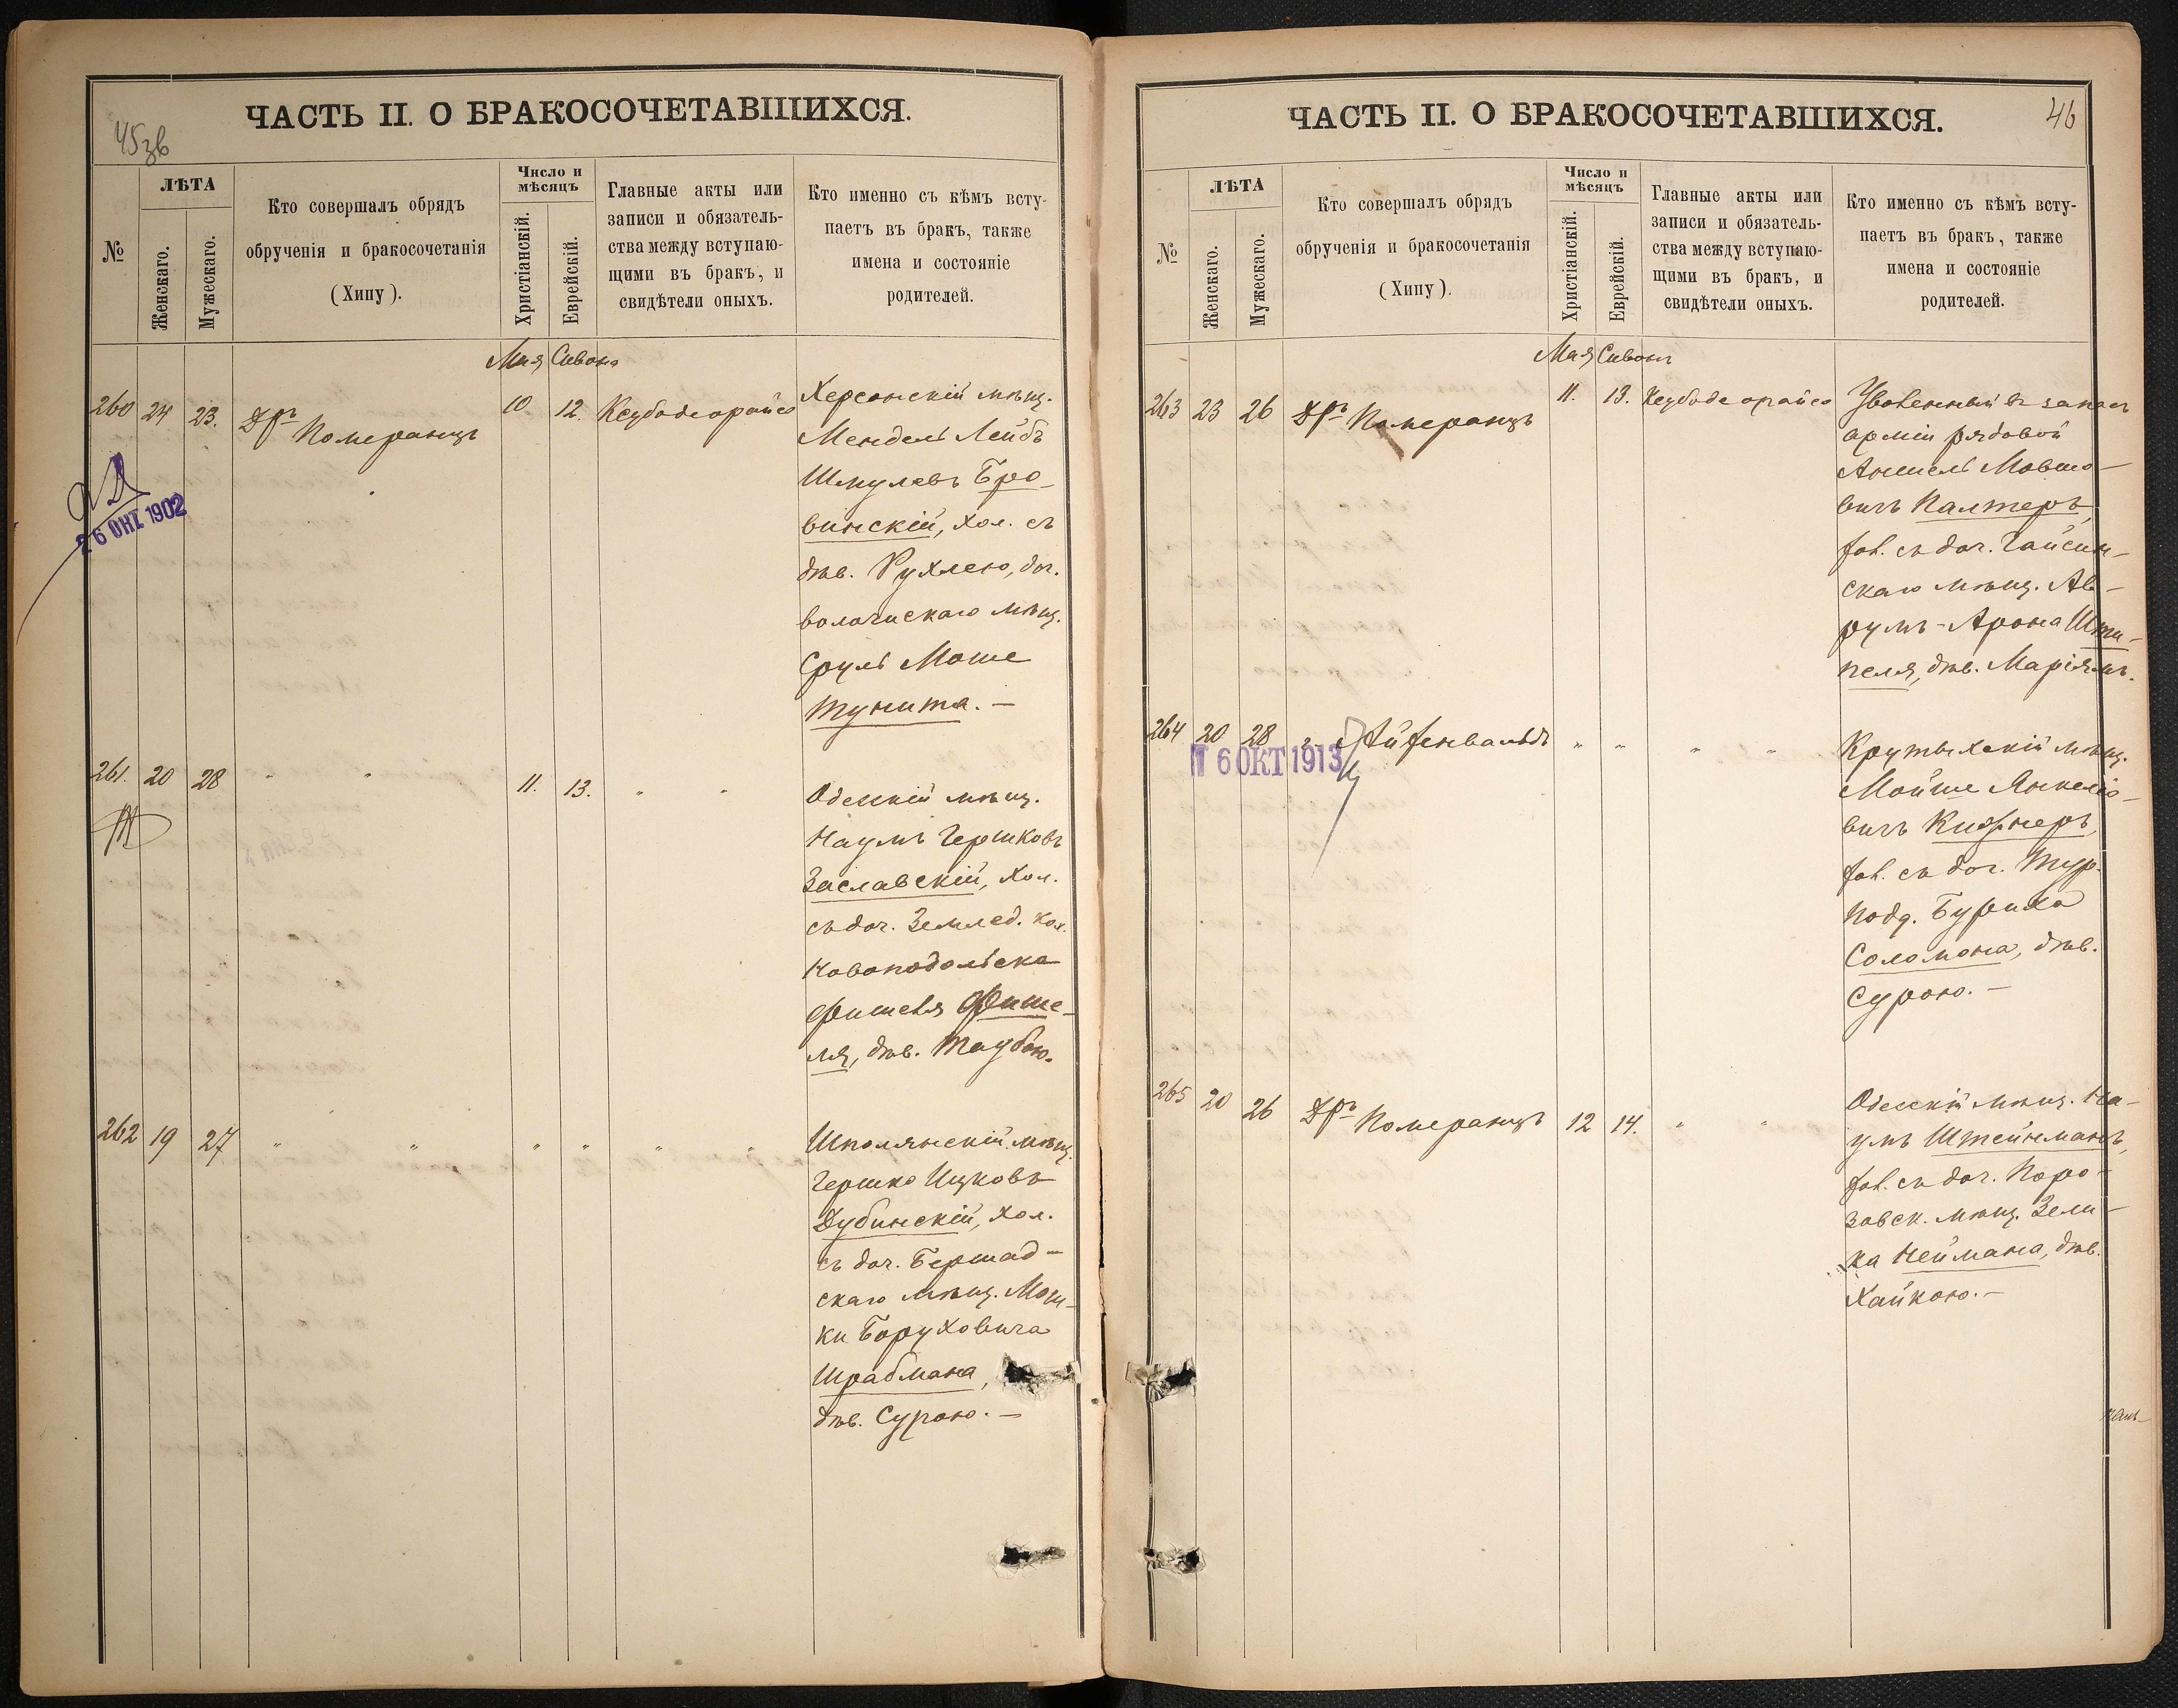 45зв
ЧАСТЬ II. О БРАКОСОЧЕТАВШИХСЯ.
№
ЛѢТА
Женскаго.
Мужескаго.
Кто совершалъ обрядъ
обрученія и бракосочетанія
(Хипу).
Число и
мѣсяцъ
Христіанскій.
Еврейскій.
Главные акты или
записи и обязатель-
ства между вступаю-
щими въ бракъ, и
свидѣтели оныхъ.
Кто именно съ кѣмъ всту-
паетъ въ бракъ, также
имена и состояніе
родителей.
Мая Сивона
260 24 23. Дръ Померанцъ 10 12. Ксубаде орайсо
Херсонскій мѣщ.
Мендель Лейбъ
Шмулевъ Бро-
винскій, хол. съ
дѣв. Рухлею, доч.
волочискаго мѣщ.
Сруль Моше
Тунита. —
26 ОКТ 1902
261. 20 28 " " 11. 13. " "
Одесскій мѣщ.
Наумъ Гершковъ
Заславскій, хол.
съ доч. Землед. кол.
Новоподольска
Фишеля Фише-
ля, дѣв. Таубою.
262 19 27 " " " " " "
Шполянскій мѣщ.
Гершко Ицковъ
Дубинскій, хол.
съ доч. Бершад-
скаго мѣщ. Мош-
ки Боруховича
Шрабмана,
дѣв. Сурою. —
46
ЧАСТЬ II. О БРАКОСОЧЕТАВШИХСЯ.
№
ЛѢТА
Женскаго.
Мужескаго.
Кто совершалъ обрядъ
обрученія и бракосочетанія
(Хипу).
Число и
мѣсяцъ
Христіанскій.
Еврейскій.
Главные акты или
записи и обязатель-
ства между вступаю-
щими въ бракъ, и
свидѣтели оныхъ.
Кто именно съ кѣмъ всту-
паетъ въ бракъ, также
имена и состояніе
родителей.
Мая Сивона
263 23 26 Дръ Померанцъ 11. 13. Ксубаде орайсо
Уволенный въ запасъ
арміи рядовой
Аншель Мовшо-
вичъ Палтеръ,
хол. съ доч. Гайсин-
скаго мѣщ. Ав-
румъ-Арона Шти-
пеля, дѣв. Маріямъ.
264 20 28 Айзенвальдъ " " " "
6 ОКТ 1913
Крутыхскій мѣщ.
Мойше Янкеле-
вичъ Кифнеръ,
хол. съ доч. Тур.
подд. Буриха
Соломона, дѣв.
Сурою. —
265 20 26 Дръ Померанцъ 12 14. " "
Одесскій мѣщ. На-
умъ Штейнманъ,
хол. съ доч. Поро-
завск. мѣщ. Зели-
ка Неймана, дѣв.
Хайкою. —